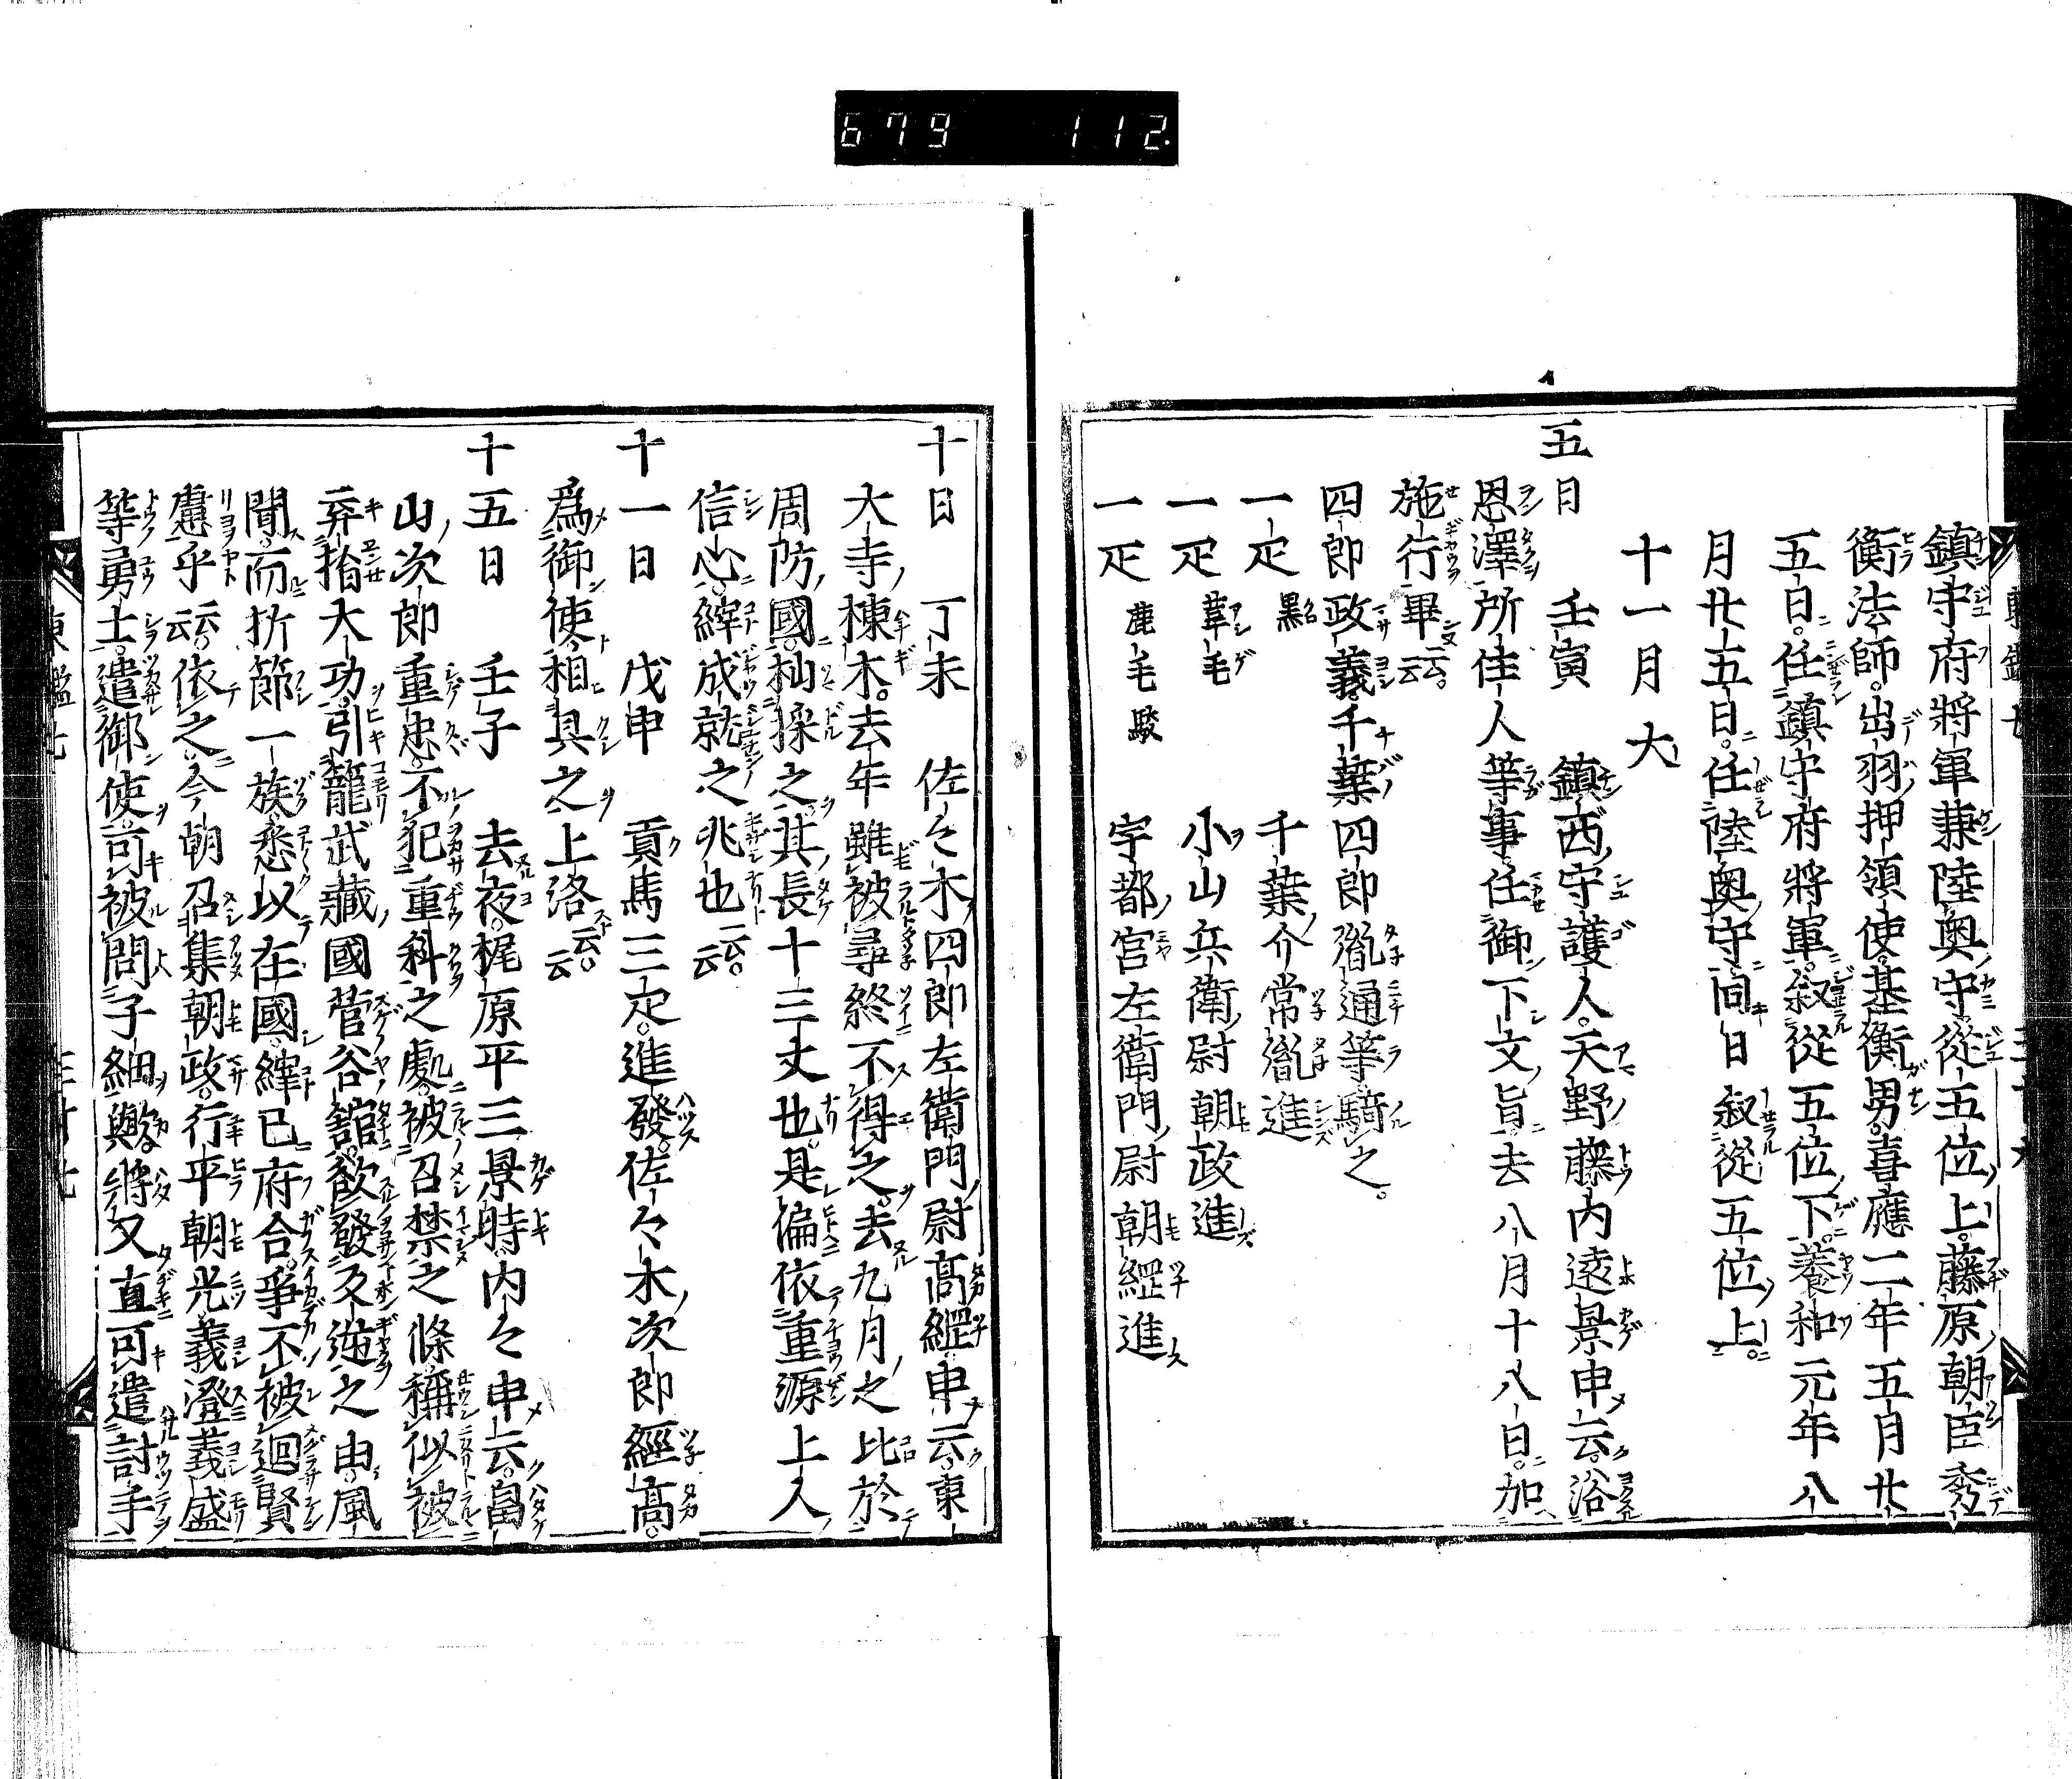 679 112
鎮守府將軍兼陸奥守從五位上藤原朝臣秀
衡法師出羽押領使基衡男嘉應二年五月廿
五日任鎮守府將軍叙從五位下養和元年八
月廿五日任陸奥守同日叙從五位上
十一月大
五日 壬寅 鎮西守護人天野藤内遠景申云浴
恩澤所住人等事任御下文旨去八月十八日加
施行畢云云
四郎政義千葉四郎胤通等騎之
一疋 黒 千葉介常胤進
一疋 葦毛 小山兵衛尉朝政進
一疋 鹿毛駮 宇都宮左衛門尉朝綱進
十日 丁未 佐々木四郎左衛門尉髙綱申云東
大寺棟木去年雖被尋終不得之去九月之比於
周防國杣採之其長十三丈也是偏依重源上人
信心縡成就之兆也云云
十一日 戊申 貢馬三疋進發佐々木次郎經髙
爲御使相具之上洛云云
十五日 壬子 去夜梶原平三景時内々申云畠
山次郎重忠不犯重科之處被召禁之條稱似被
弃捐大功引籠武藏國菅谷舘欲發反逆之由風
聞而折節一族悉以在國縡已府合爭不被廻賢
慮乎云云依之今朝召集朝政行平朝光義澄義盛
等勇士遣御使可被問子細歟將又直可遣討手